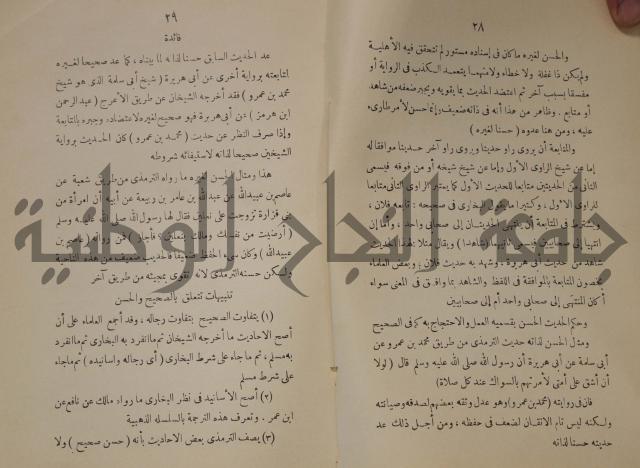 ٢٨
والحسن لغيره ما كان فى إسناده مستور لم تتحقق فيه الأهلية
ولم يكن ذا غفلة ولا خطاء ولا متهما بتعمد الكذب فى الرواية أو
مفسقا بسبب آخر ثم اعتضد الحديث بما يقويه ويجبر ضعفه من شاهد
أو متابع . وظاهر من هذا أنه فى ذاته ضعيف وإنما حسن لأمر طارىء
عليه ، ومن هنا عدوه ( حسنا لغيره )
والمتابعة أن يروى راو حديثا ويروى راو آخر حديثا موافقا له
إما عن شيخ الراوى الأول وإما عن شيخ شيخه أو من فوقه فيسمى
الثانى من الحديثين متابعا للحديث الأول كما يعتبر الراوى الثانى متابعا
للراوى الأول ، وكثيرا ما يقول البخارى فى صحيحه : تابعه فلان ،
ويشترط فى المتابعة أن ينتهى الحديثان إلى صحابى واحد ، وأما إن
انتهيا إلى صحابيين فيسمى ثانيهما ( شاهدا ) ويقال مثلا لهذا الحديث
شاهد من حديث أبى هريرة . وشهد به حديث فلان ؛ وبعض العلماء
يخصون المتابعة بالموافقة فى اللفظ والشاهد بما وافق فى المعنى سواء
أكان المنتهى إلى صحابى واحد أم إلى صحابيين
وحكم الحديث الحسن بقسميه العمل والاحتجاج به كما فى الصحيح
ومثل الحسن لذاته حديث الترمذى من طريق محمد بن عمرو عن
أبى سلمة عن أبى هريرة أن رسول الله صلى الله عليه وسلم قال ( لولا
أن أشق على أمتى لأمرتهم بالسواك عند كل صلاة )
فان فى روايته ( محمد بن عمرو ) وهو عدل وثقه بعضهم لصدقه وصيانته
ولكنه ليس تام الاتقان لضعف فى حفظه ، ومن أجل ذلك عد
حديثه حسنا لذاته
٢٩
فائدة
عد الحديث السابق حسنا لذاته لما بيناه ، كما عد صحيحا لغيره
لمتابعته برواية أخرى عن أبى هريرة ( شيخ أبى سلمة الذى هو شيخ
محمد بن عمرو ) فقد أخرجه الشيخان عن طريق الأعرج ( عبد الرحمن
ابن هرمز ) عن أبى هريرة فهو صحيح لغيره لاعتضاده وجبره بالمتابعة
وإذا صرف النظر عن حديث ( محمد بن عمرو ) كان الحديث برواية
الشيخين صحيحا لذاته لاستيفائه شروطه
هذا ومثال الحسن لغيره ما رواه الترمذى من طريق شعبة عن
عاصم بن عبيد الله عن عبد الله بن عامر بن ربيعة عن أبيه أن امرأة من
بنى فزارة تزوجت على نعلين فقال لها رسول الله صلى الله عليه وسلم
( أرضيت من نفسك ومالك بنعلين ؟ فأجاز ) فمن رواته ( عاصم بن
عبيد الله ) وكان سىء الحفظ ضعيفا فالحديث ضعيف من هذه الناحية
ولكن حسنه الترمذى لأنه تقوى بمجيئه من طريق آخر
تنبيهات تتعلق بالصحيح والحسن
(١) يتفاوت الصحيح بتفاوت رجاله ، وقد أجمع العلماء على أن
أصح الاحاديث ما أخرجه الشيخان ثم ما انفرد به البخارى ثم ما انفرد
به مسلم ، ثم ما جاء على شرط البخارى ( أى رجاله واسانيده ) ثم ما جاء
على شرط مسلم
(٢) أصح الأسانيد فى نظر البخارى ما رواه مالك عن نافع عن
ابن عمر . وتعرف هذه الترجمة بالسلسلة الذهبية
(٣) يصف الترمذى بعض الاحاديث بأنه ( حسن صحيح ) ولا
جامعة النجاح الوطنية